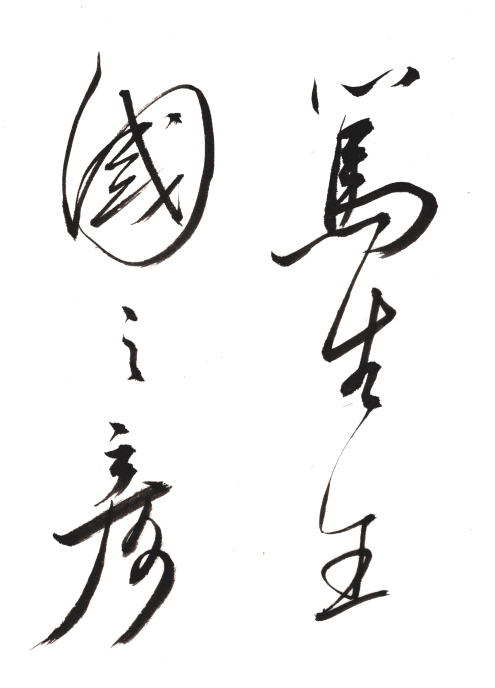 篤生
國之彥